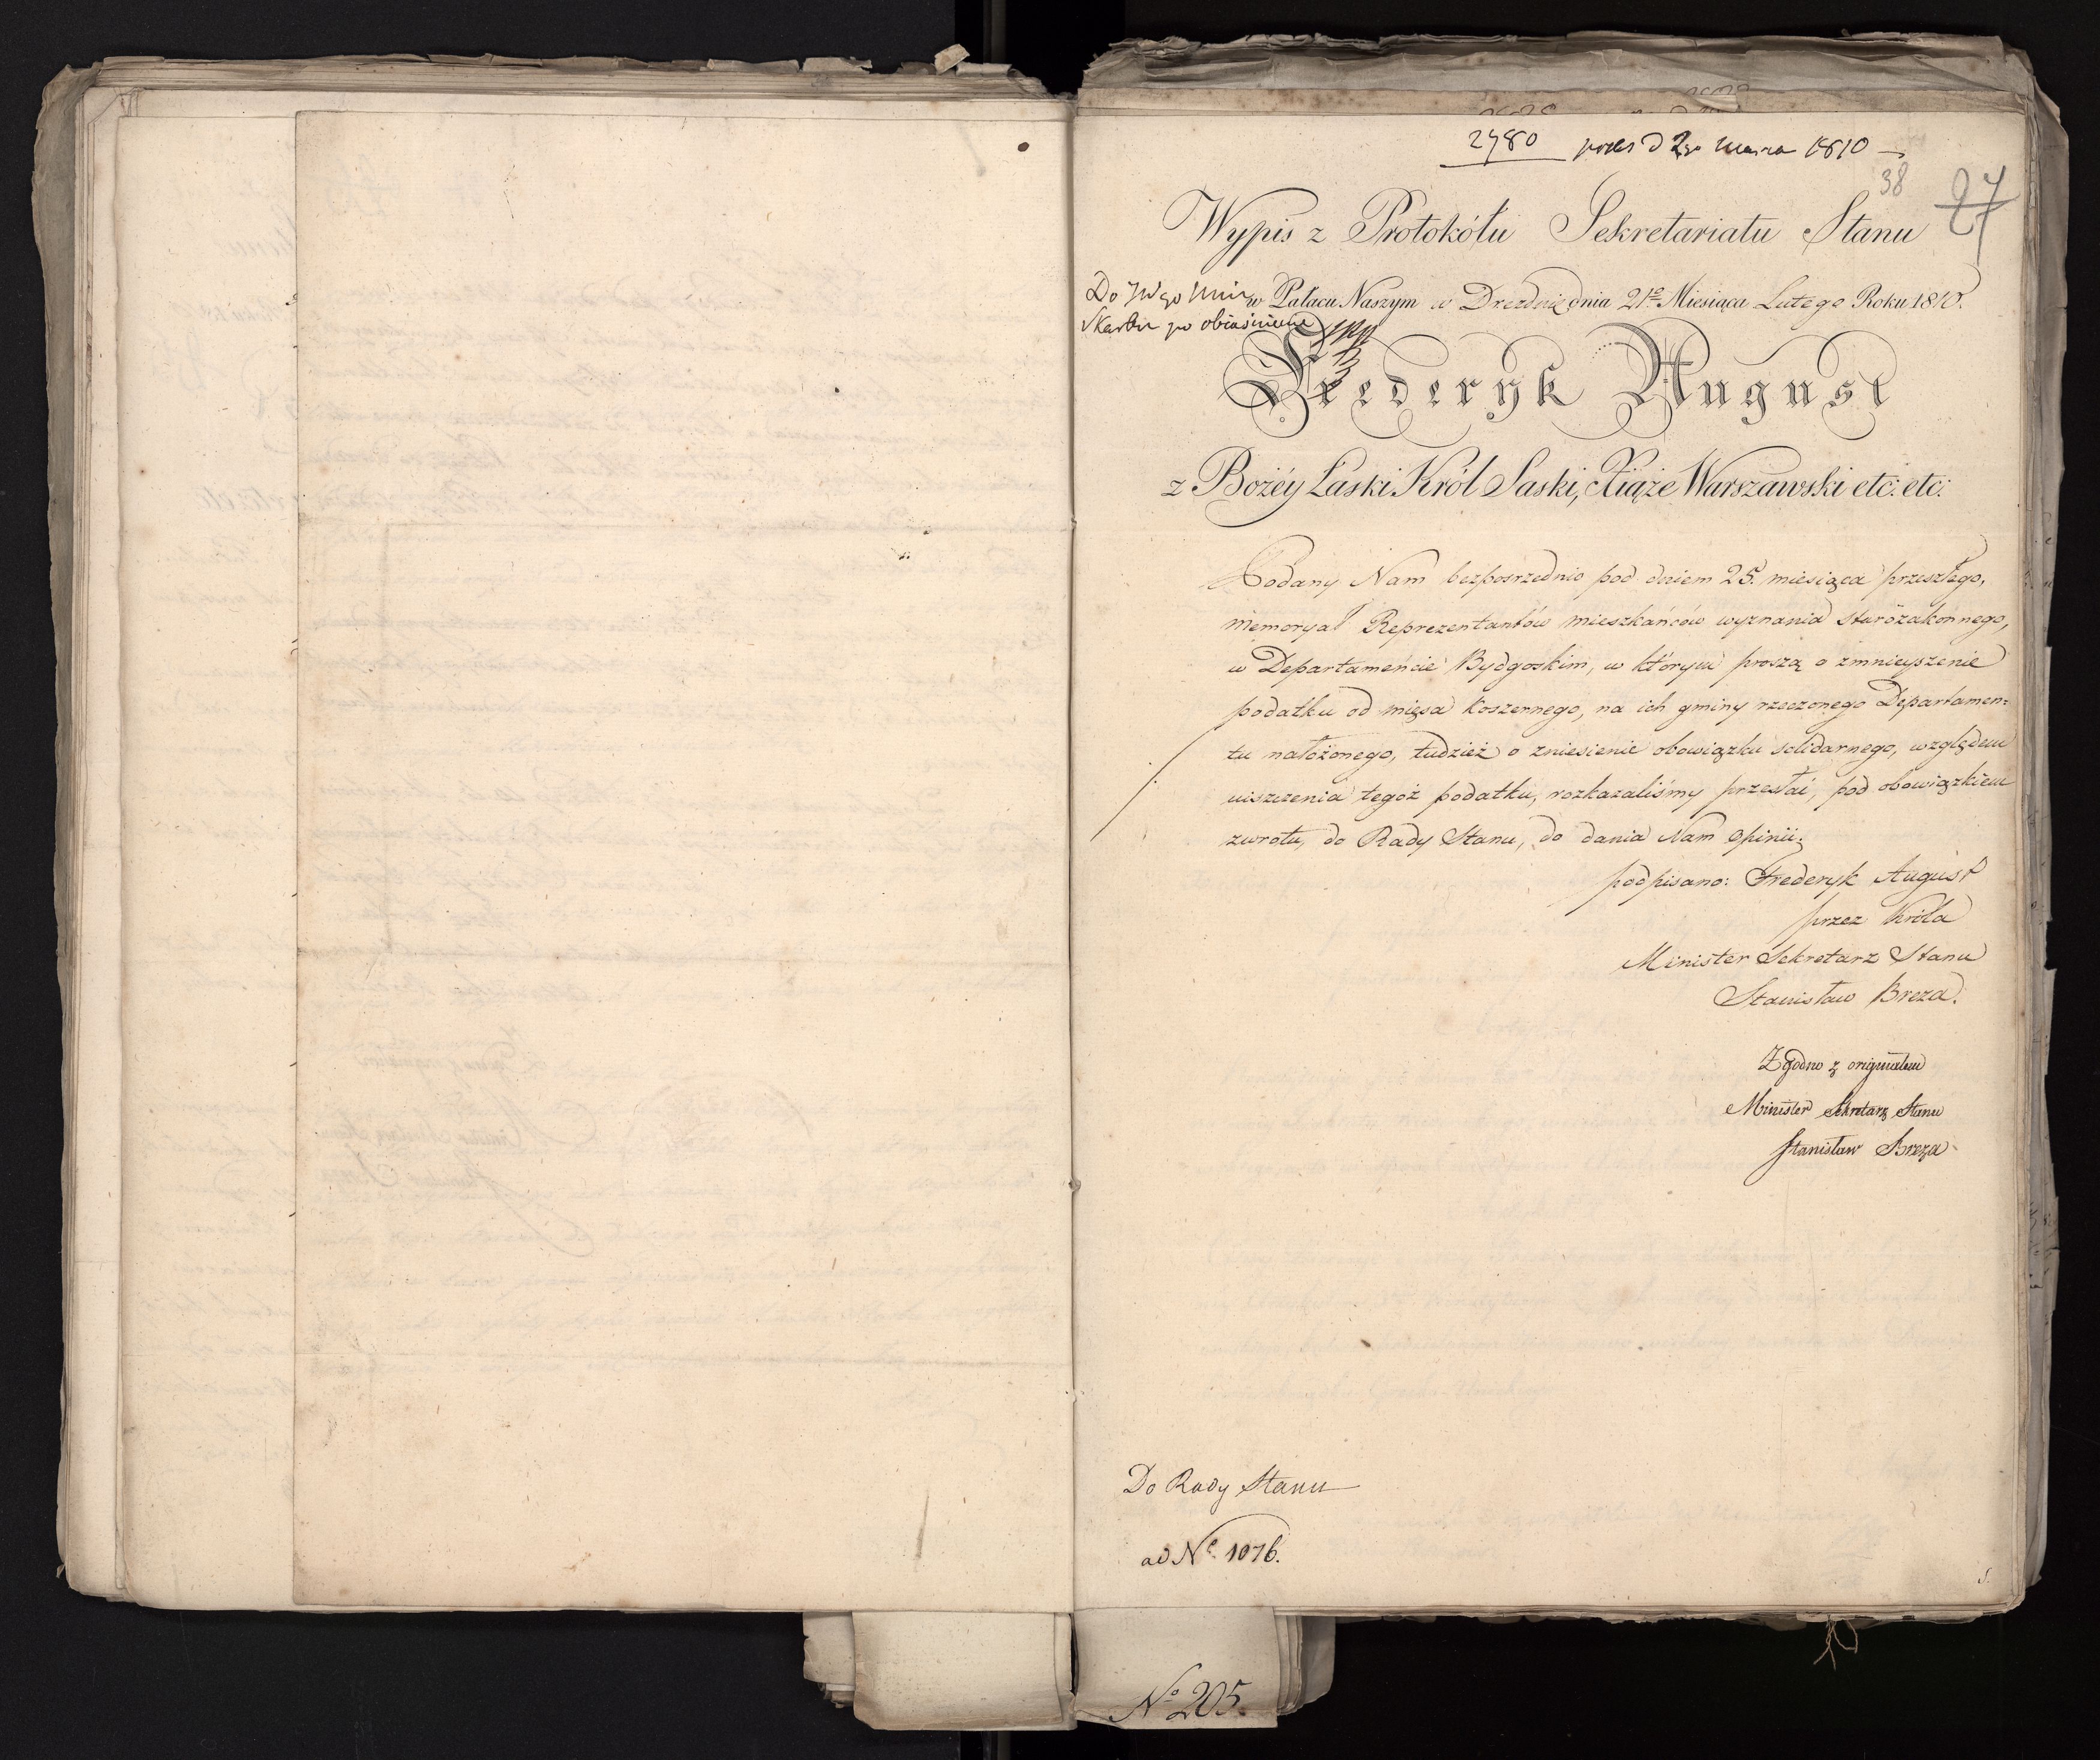 2480 pods d 2go Marca 1810
38
27
Wypis z Protokółu Sekretariatu Stanu
Do JWgo Min
w Pałacu Naszym w Dreznie dnia 21º Miesiąca Lutego Roku 1810.
Skarbu po obiaśnienie
Frederyk August
z Bożéy Łaski Król Saski, Xiąże Warszawski etc: etc:
Podany Nam bezpośrzednio pod dniem 25. miesiąca przeszłego,
memoryał Reprezentantów mieszkańców wyznania starozakonnego,
w Departamencie Bydgoskim, w którym proszą o zmnieyszenie
podatku od mięsa koszernego, na ich gminy rzeczonego Departamen=
tu nałożonego, tudzież o zniesienie obowiązku solidarnego, względem
uiszczenia tegoż podatku, rozkazaliśmy przesłać, pod obowiązkiem
zwrotu, do Rady Stanu, do dania Nam Opinii;
podpisano: Frederyk August
przez Króla
Minister Sekretarz Stanu
Stanisław Breza.
Zgodno z originałem
Minister Sekretarz Stanu
Stanisław Breza
Do Rady Stanu
ad Nº 1076.
Nº 205.